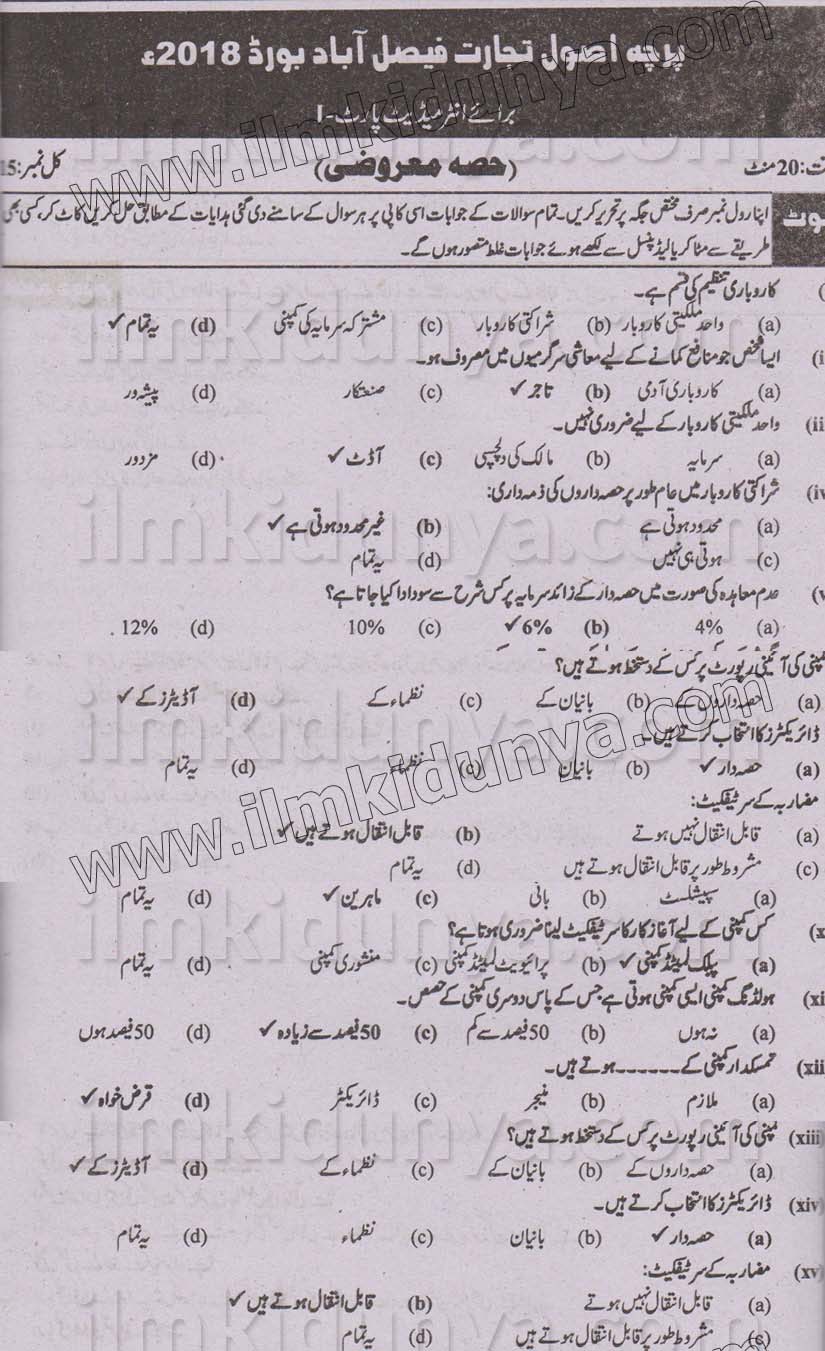 پرچہ اصول تجارت فیصل آباد بورڈ 2018ء
برائے انٹرمیڈیٹ پارٹ-I
ت: 20 منٹ (حصہ معروضی) کل نمبر: 15
وٹ اپنا رول نمبر صرف مختص جگہ پر تحریر کریں۔ تمام سوالات کے جوابات اسی کاپی پر ہر سوال کے سامنے دی گئی ہدایات کے مطابق حل کریں کاٹ کر، کسی بھی
طریقے سے مٹا کر یا لیڈ پنسل سے لکھے ہوئے جوابات غلط متصور ہوں گے۔
کاروباری تنظیم کی قسم ہے۔
(a) واحد ملکیتی کاروبار (b) شراکتی کاروبار (c) مشترکہ سرمایہ کی کمپنی (d) یہ تمام ✓
(i ایسا شخص جو منافع کمانے کے لیے معاشی سرگرمیوں میں مصروف ہو۔
(a) کاروباری آدمی (b) تاجر ✓ (c) صنعتکار (d) پیشہ ور
(ii واحد ملکیتی کاروبار کے لیے ضروری نہیں۔
(a) سرمایہ (b) مالک کی دلچسپی (c) آڈٹ ✓ (d) مزدور
(iv شراکتی کاروبار میں عام طور پر حصہ داروں کی ذمہ داری:
(a) محدود ہوتی ہے (b) غیر محدود ہوتی ہے ✓
(c) ہوتی ہی نہیں (d) یہ تمام
(v عدم معاہدہ کی صورت میں حصہ دار کے زائد سرمایہ پر کس شرح سے سود ادا کیا جاتا ہے؟
(a) 4% (b) 6% ✓ (c) 10% (d) 12%
کمپنی کی آئینی رپورٹ پر کس کے دستخط ہوتے ہیں؟
(a) حصہ داروں کے (b) بانیان کے (c) نظماء کے (d) آڈیٹرز کے ✓
ڈائریکٹرز کا انتخاب کرتے ہیں۔
(a) حصہ دار ✓ (b) بانیان (c) نظماء (d) یہ تمام
مضاربہ کے سرٹیفکیٹ:
(a) قابل انتقال نہیں ہوتے (b) قابل انتقال ہوتے ہیں ✓
(c) مشروط طور پر قابل انتقال ہوتے ہیں (d) یہ تمام
(a) سپیشلسٹ (b) بانی (c) ماہرین ✓ (d) یہ تمام
(x کس کمپنی کے لیے آغاز کار کا سرٹیفکیٹ لینا ضروری ہوتا ہے؟
(a) پبلک لمیٹڈ کمپنی ✓ (b) پرائیویٹ لمیٹڈ کمپنی (c) منشوری کمپنی (d) یہ تمام
(xi ہولڈنگ کمپنی ایسی کمپنی ہوتی ہے جس کے پاس دوسری کمپنی کے حصص۔
(a) نہ ہوں (b) 50 فیصد سے کم (c) 50 فیصد سے زیادہ ✓ (d) 50 فیصد ہوں
(xii تمسکدار کمپنی کے ۔۔۔۔۔۔ ہوتے ہیں۔
(a) ملازم (b) منیجر (c) ڈائریکٹر (d) قرض خواہ ✓
(xiii) کمپنی کی آئینی رپورٹ پر کس کے دستخط ہوتے ہیں؟
(a) حصہ داروں کے (b) بانیان کے (c) نظماء کے (d) آڈیٹرز کے ✓
(xiv) ڈائریکٹرز کا انتخاب کرتے ہیں۔
(a) حصہ دار ✓ (b) بانیان (c) نظماء (d) یہ تمام
(xv) مضاربہ کے سرٹیفکیٹ:
(a) قابل انتقال نہیں ہوتے (b) قابل انتقال ہوتے ہیں ✓
(c) مشروط طور پر قابل انتقال ہوتے ہیں (d) یہ تمام
www.ilmkidunya.com
www.ilmkidunya.com
ilmkidunya.com
ilmkidunya.com
ilmkidunya.com
ilmkidunya.com
ilmkidunya.com
ilmkidunya.com
ilmkidunya.com